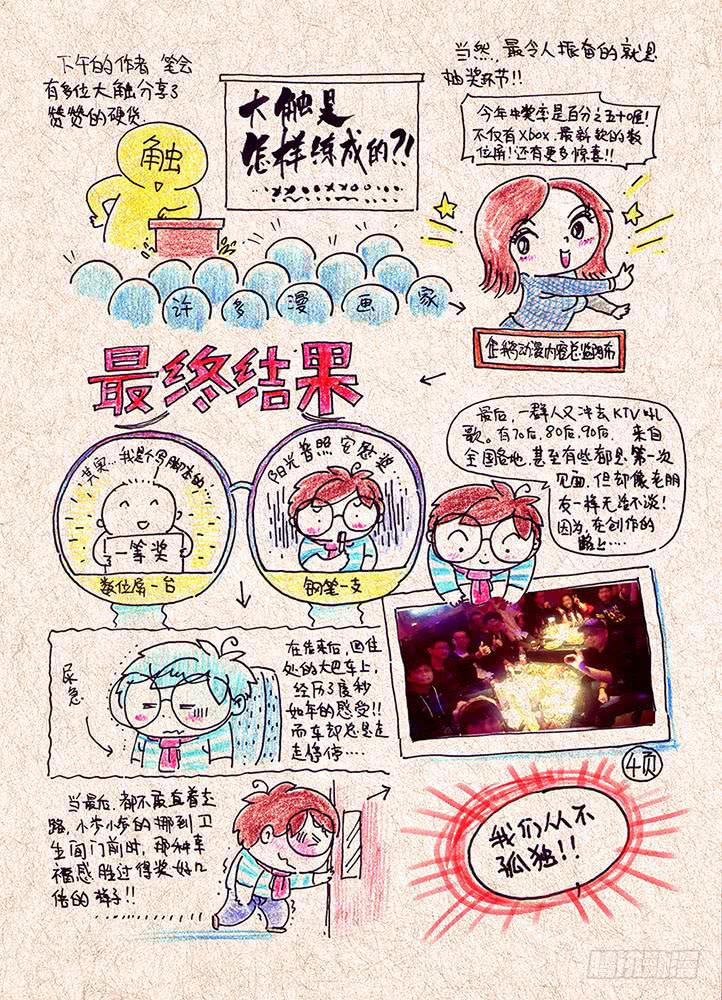 下午的作者笔会
有多位大触分享了
赞赞的硬货
触
大触是
怎样练成的?!
许多漫画家
当然,最令人振奋的就是
抽奖环节!!
今年中奖率是百分之五十喔!
不仅有Xbox、最新款的数
位屏!还有更多惊喜!!
企鹅动漫内容总监阿布
最终结果
其实…我是个写脚本的…
一等奖
数位屏一台
阳光普照安慰奖…
钢笔一支
最后,一群人又冲去KTV吼
歌。有70后,80后,90后,来自
全国各地,甚至有些都是第一次
见面,但却像老朋
友一样无话不谈!
因为,在创作的
路上…
尿急
在结束后,回住
处的大巴车上,
经历了度秒
如年的感受!!
而车却总是走
走停停…
4页
当最后,都不敢直着走
路,小步小步的挪到卫
生间门前时,那种幸
福感胜过得奖好几
倍的样子!!
我们从不
孤独!!
腾讯动漫